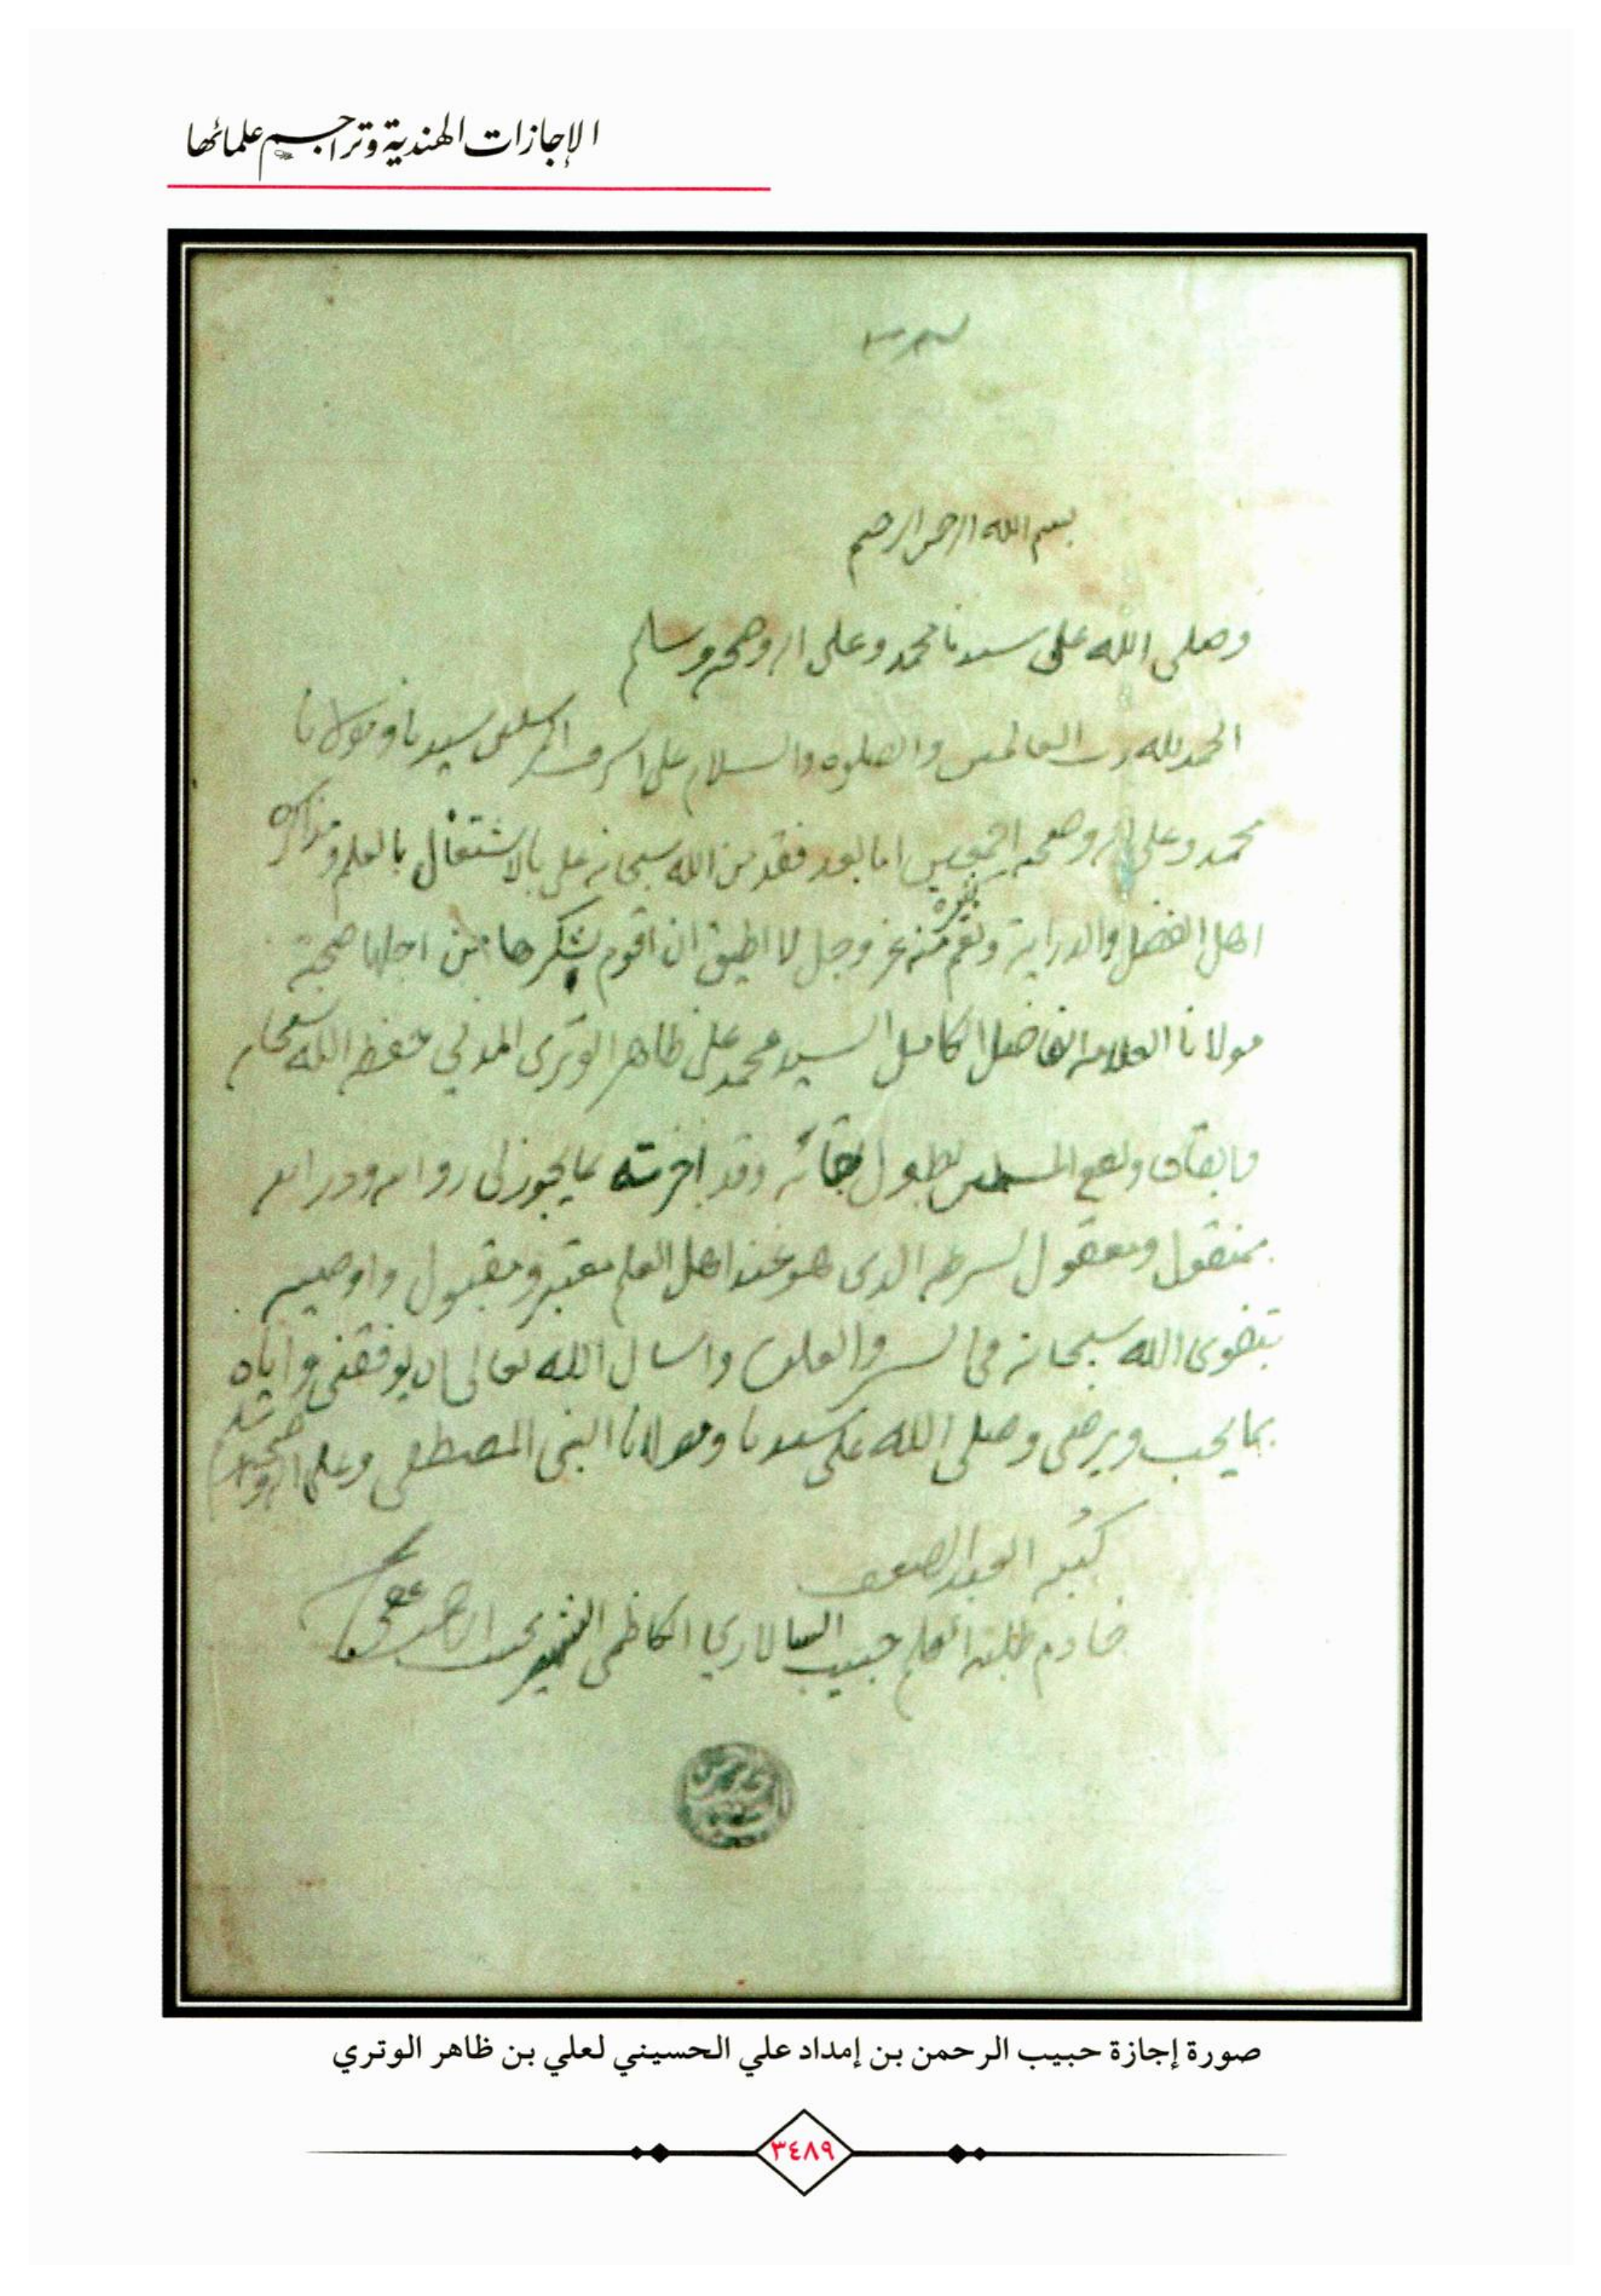 الإجازات الهندية وتراجم علمائها
بسم الله الرحمن الرحيم
وصلى الله على سيدنا محمد وعلى اله وصحبه وسلم
الحمد لله رب العالمين والصلوه والسلام على اشرف المرسلين سيدنا ومولانا
محمد وعلى اله وصحبه اجمعين اما بعد فقد من الله سبحانه علي بالاشتغال بالعلم ومذاكره
اهل الفضل والدراية ونعم كثيره منه عز وجل لا اطيق ان اقوم بشكرها من اجلها صحبة
مولانا العلامه الفاضل الكامل السيد محمد علي ظاهر الوترى المدني حفظه الله سبحانه
وابقاه ونفع المسلمين بطول بقائه وقد اجزته بما يجوز لي روايه ودرايه
بمنقول ومعقول بشرطه الذى هو عند اهل العلم معتبر ومقبول واوصيه
بتقوى الله سبحانه في السر والعلن واسال الله تعالى ان يوفقني واياه
بما يحب ويرضى وصلى الله على سيدنا ومولانا النبي المصطفى وعلى اله وصحبه وسلم
كتبه العبد الضعيف
خادم طلبة العلم حبيب الكاظمي الشهير بحبيب الرحمن عفي
صورة إجازة حبيب الرحمن بن إمداد علي الحسيني لعلي بن ظاهر الوتري
٣٤٨٩